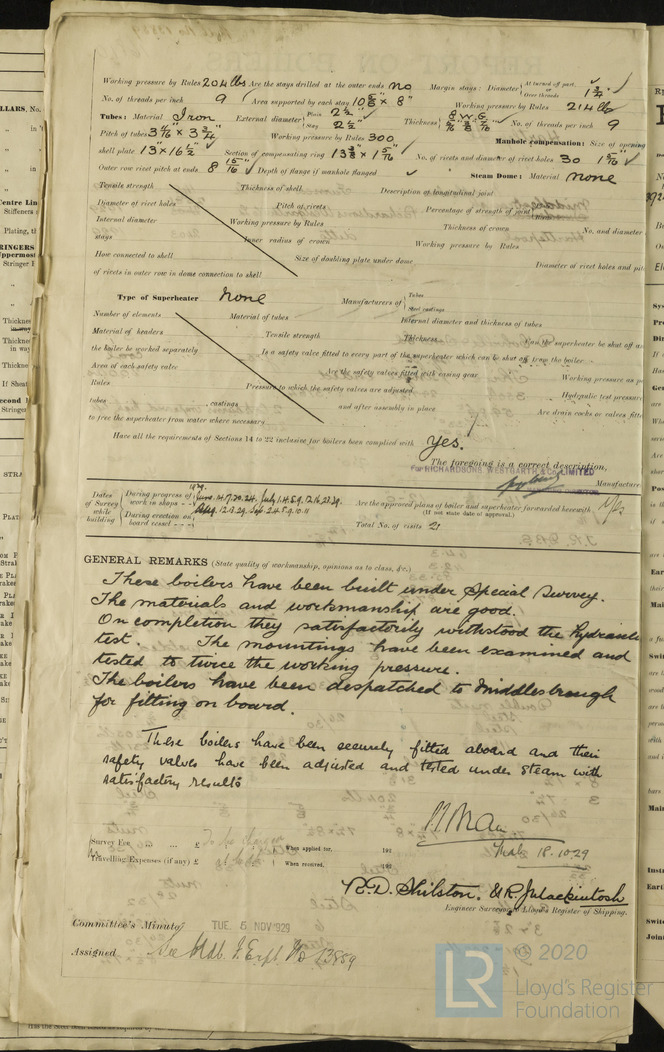 Working pressure by Rules 204 lbs Are the stays drilled at the outer ends no Margin stays: Diameter { At turned off part, or Over threads 1 3/4"
No. of threads per inch 9 Area supported by each stay 10 5/8 × 8" Working pressure by Rules 214 lb
Tubes: Material Iron External diameter { Plain 2 1/2" Stay 2 1/2" Thickness { 8 W.G. No. of threads per inch 9
Pitch of tubes 3 7/16 × 3 3/4" Working pressure by Rules 300 Manhole compensation: Size of opening
shell plate 13" × 16 1/2" Section of compensating ring 13 3/8 × 1 5/16" No. of rivets and diameter of rivet holes 30 1 5/16"
Outer row rivet pitch at ends 8 15/16" Depth of flange if manhole flanged Steam Dome: Material none
Tensile strength Thickness of shell Description of longitudinal joint
Diameter of rivet holes Pitch of rivets Percentage of strength of joint
Internal diameter Working pressure by Rules Thickness of crown No. and diameter
stays Inner radius of crown Working pressure by Rules
How connected to shell Size of doubling plate under dome Diameter of rivet holes and pitch
of rivets in outer row in dome connection to shell
Type of Superheater None Manufacturers of { Tubes Steel castings
Number of elements Material of tubes Internal diameter and thickness of tubes
Material of headers Tensile strength Thickness Can the superheater be shut off and
the boiler be worked separately Is a safety valve fitted to every part of the superheater which can be shut off from the boiler
Area of each safety valve Are the safety valves fitted with easing gear Working pressure as per
Rules Pressure to which the safety valves are adjusted Hydraulic test pressure
tubes castings and after assembly in place Are drain cocks or valves fitted
to free the superheater from water where necessary
Have all the requirements of Sections 14 to 22 inclusive for boilers been complied with Yes.
The foregoing is a correct description,
For RICHARDSONS WESTGARTH & Co. LIMITED
Manufacturer
DIRECTOR
Dates of Survey while building { During progress of work in shops - - 1929. June 14.17.20.24. July 1.4.5.9.12.16.23.29.
During erection on board vessel - - - Aug. 12.13.29. Sept. 2.4.5.9.10.11
Are the approved plans of boiler and superheater forwarded herewith Yes
(If not state date of approval.)
Total No. of visits 21
GENERAL REMARKS (State quality of workmanship, opinions as to class, &c.)
These boilers have been built under Special Survey.
The materials and workmanship are good.
On completion they satisfactorily withstood the hydraulic
test. The mountings have been examined and
tested to twice the working pressure.
The boilers have been despatched to Middlesbrough
for fitting on board.
These boilers have been securely fitted aboard and their
safety valves have been adjusted and tested under steam with
satisfactory results
Mdb. 18.10.29
Survey Fee ... ... £ When applied for, 192
Travelling Expenses (if any) £ When received, 192
R.D. Shilston. & R. J. Mackintosh
Engineer Surveyor to Lloyd's Register of Shipping.
Committee's Minute TUE. 5 NOV 1929
Assigned See Mdb. F.E. Rpt. No 13889
© 2020
LR Lloyd's Register
Foundation